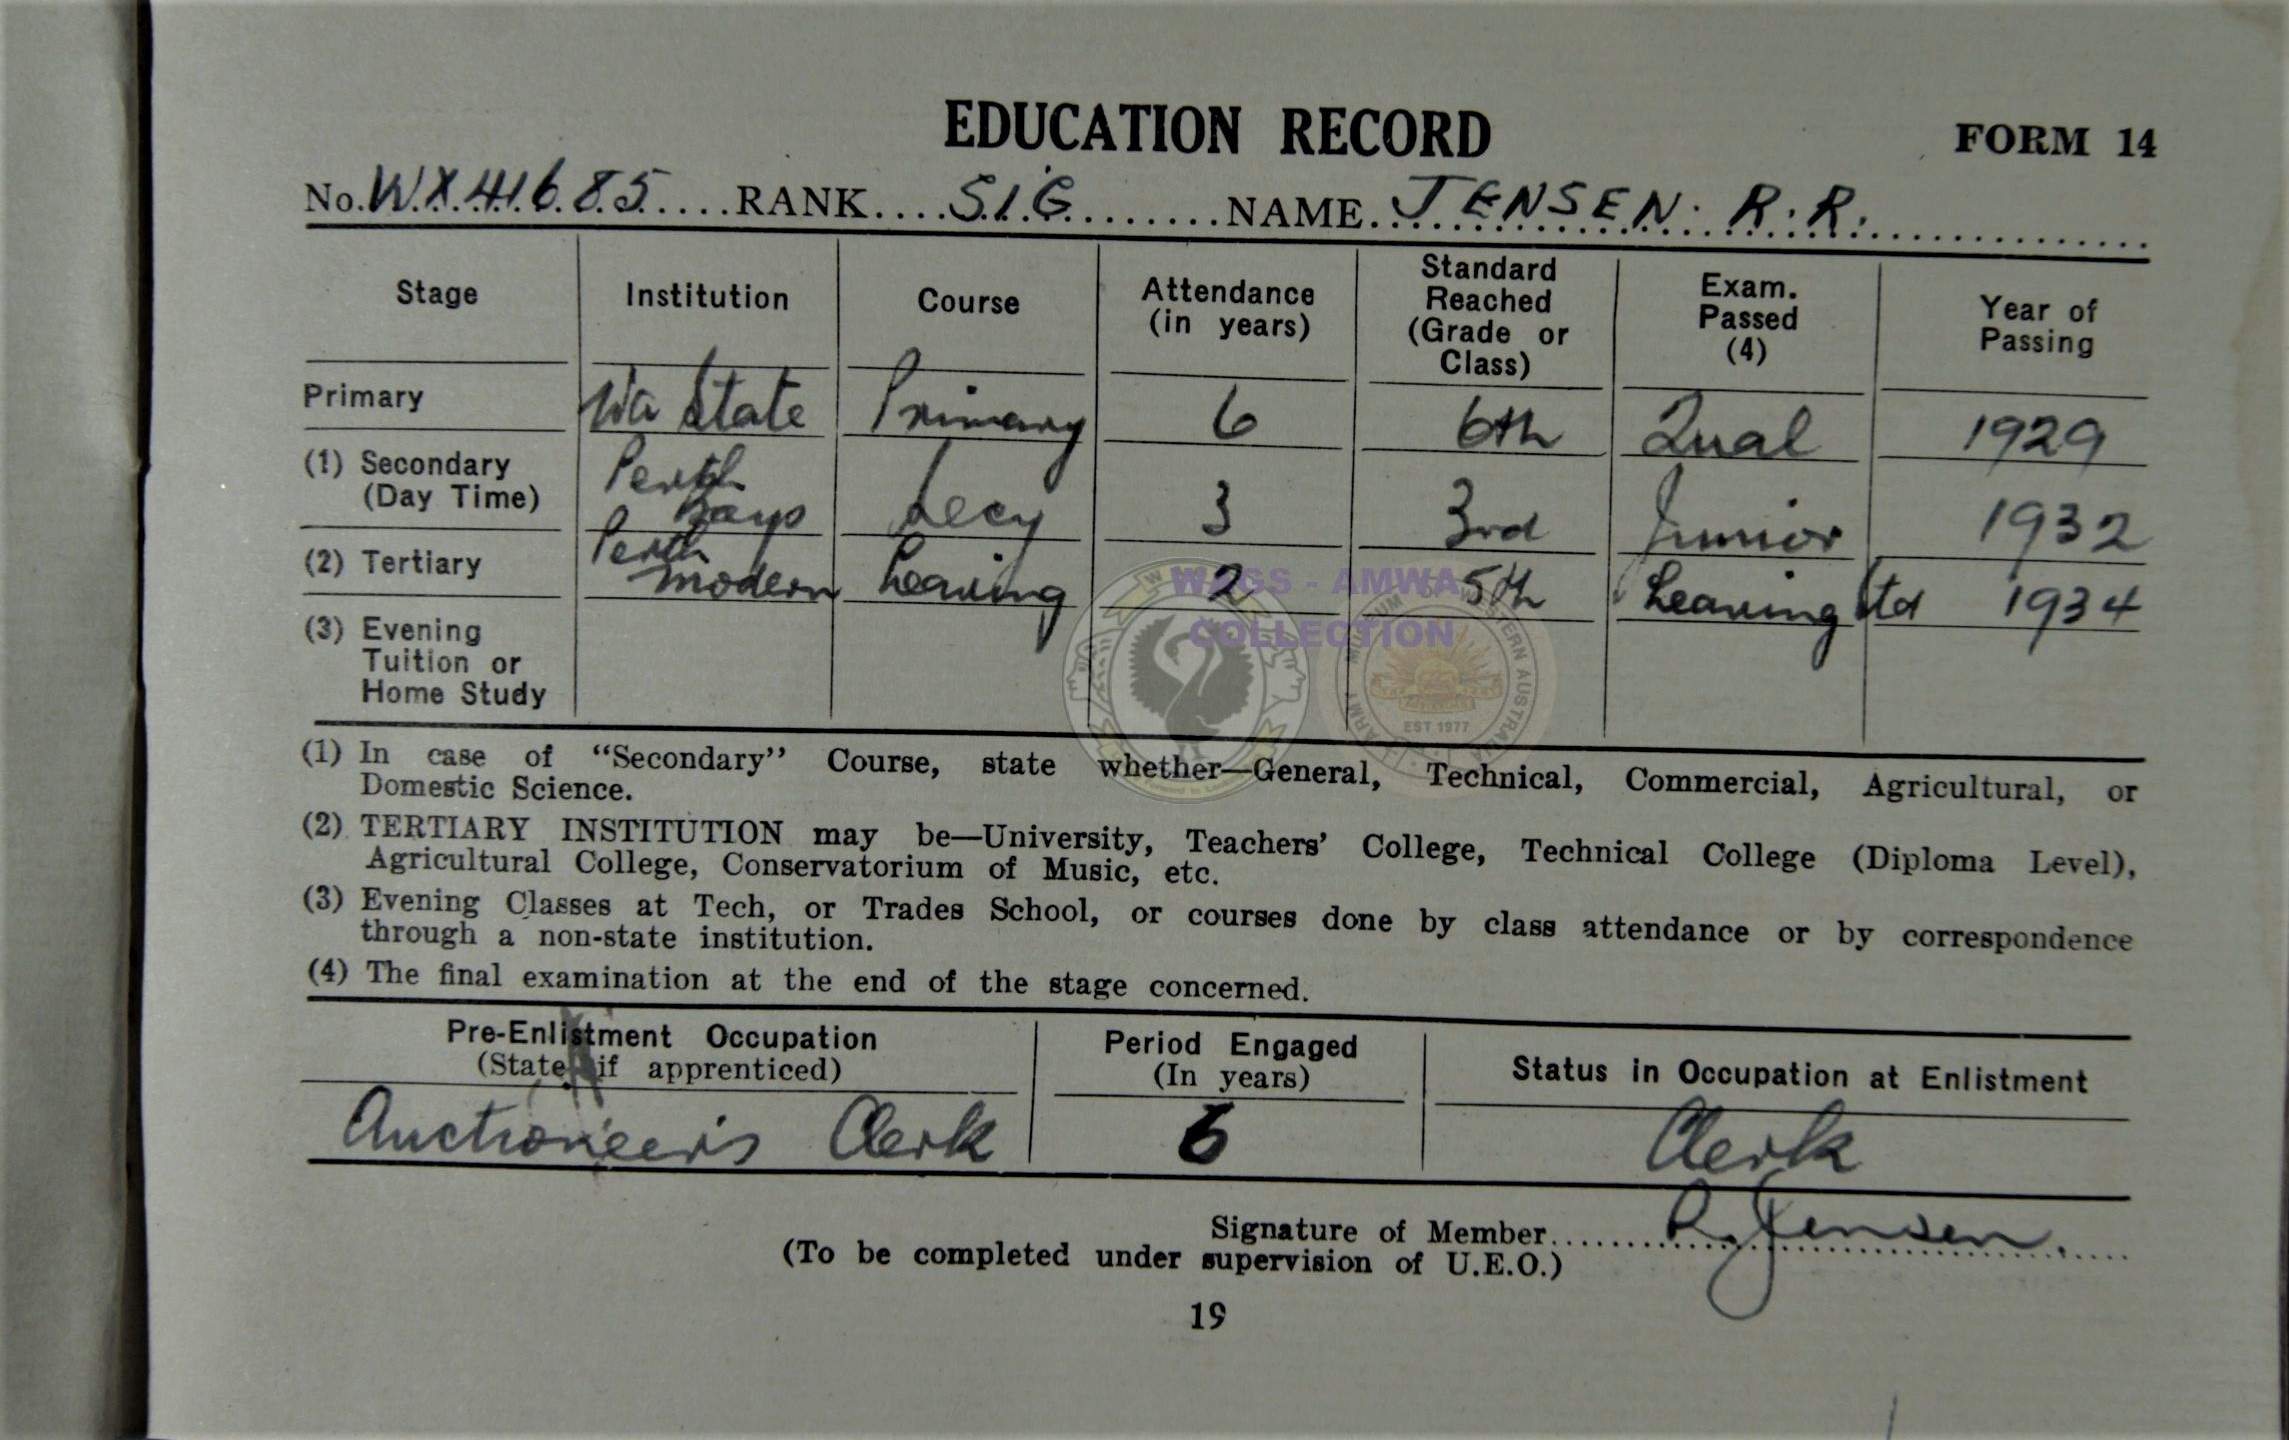 EDUCATION RECORD
FORM 14
No. WX41685 RANK SIG NAME JENSEN. R. R.
Stage Institution Course Attendance (in years) Standard Reached (Grade or Class) Exam. Passed (4) Year of Passing
Primary Wa State Primary 6 6th Qual 1929
(1) Secondary (Day Time) Perth Boys Secy 3 3rd Junior 1932
(2) Tertiary Perth Modern Leaving 2 5th Leaving Std 1934
(3) Evening
Tuition or
Home Study
WAGS - AMWA
COLLECTION
EST 1977
(1) In case of “Secondary” Course, state whether—General, Technical, Commercial, Agricultural, or
Domestic Science.
(2) TERTIARY INSTITUTION may be—University, Teachers' College, Technical College (Diploma Level),
Agricultural College, Conservatorium of Music, etc.
(3) Evening Classes at Tech, or Trades School, or courses done by class attendance or by correspondence
through a non-state institution.
(4) The final examination at the end of the stage concerned.
Pre-Enlistment Occupation Period Engaged Status in Occupation at Enlistment
(State if apprenticed) (In years)
Auctioneer's Clerk 6 Clerk
Signature of Member R. Jensen.
(To be completed under supervision of U.E.O.)
19